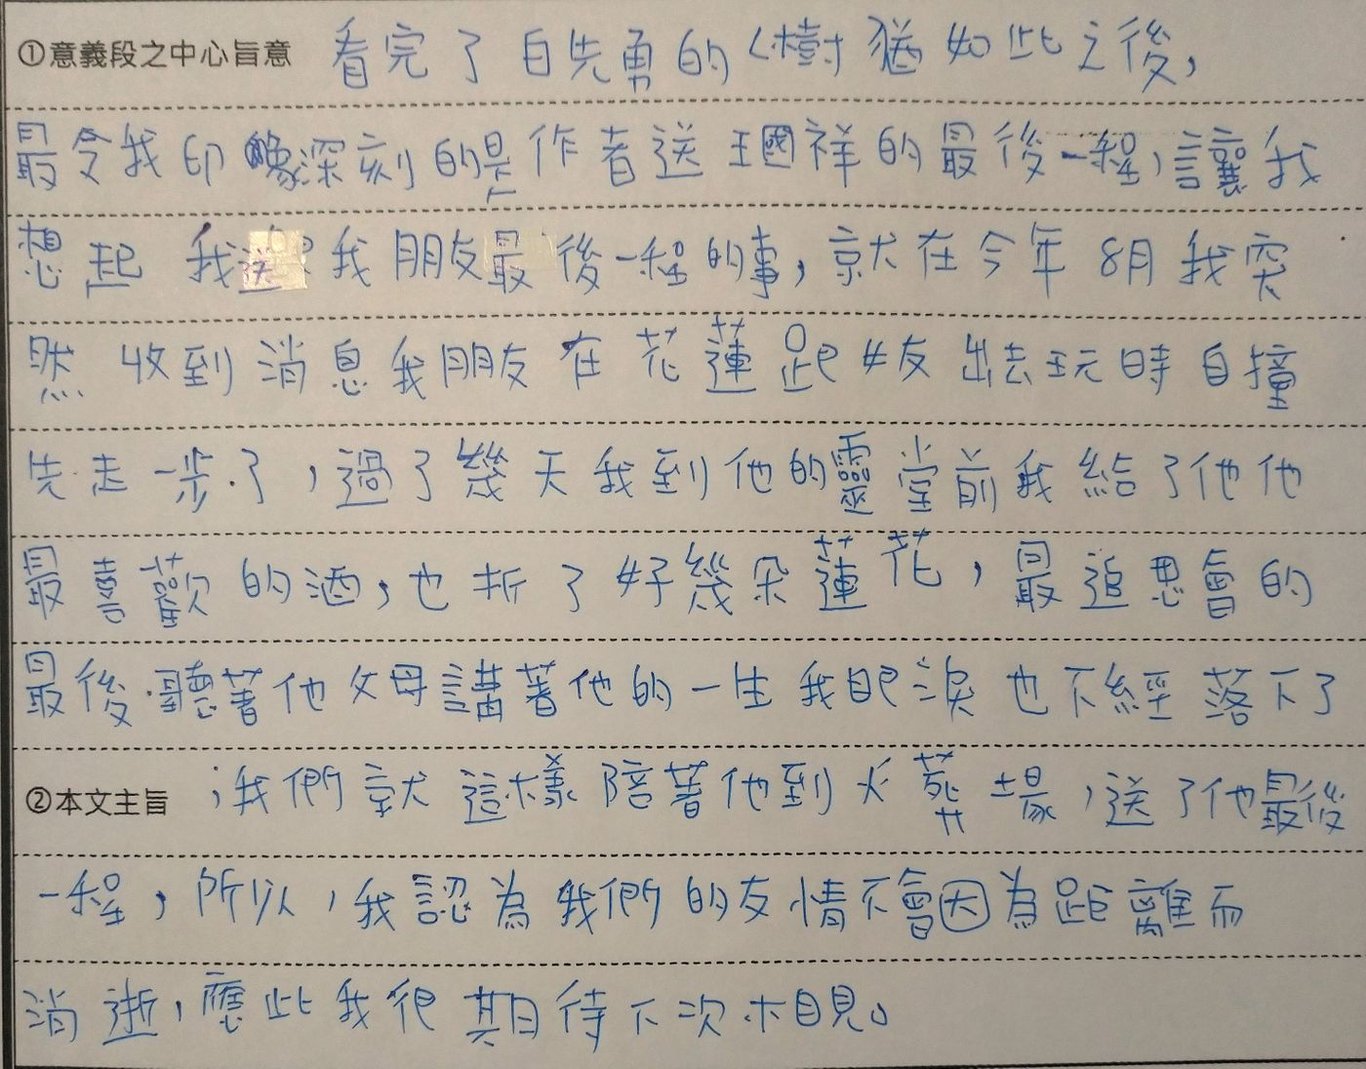 ①意義段之中心旨意 看完了白先勇的〈樹猶如此之後,
最令我印像深刻的是作者送王國祥的最後一程,讓我
想起 我送我朋友最後一程的事,就在今年8月我突
然收到消息我朋友在花蓮跑女友出去玩時自撞
先走一步了,過了幾天我到他的靈堂前我給了他他
最喜歡的酒,也折了好幾朵蓮花,最追思會的
最後聽著他父母講著他的一生我眼淚也不經落下了
②本文主旨 ,我們就這樣陪著他到火葬場,送了他最後
一程,所以,我認為我們的友情不會因為距離而
消逝,應此我很期待下次相見。